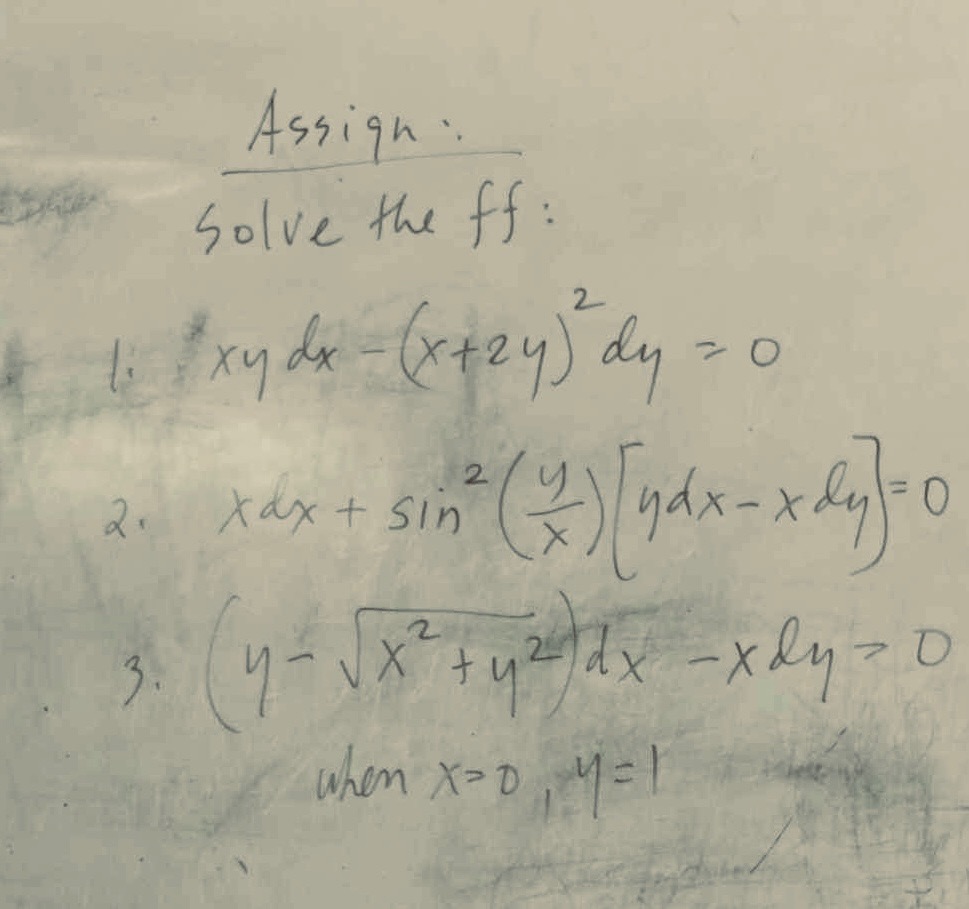 Assign:
Solve the ff:
1. xy dx - (x+2y)² dy = 0
2. xdx + sin² (y/x) [ydx - x dy] = 0
3. (y - √(x² + y²)) dx - x dy = 0
when x=0, y=1